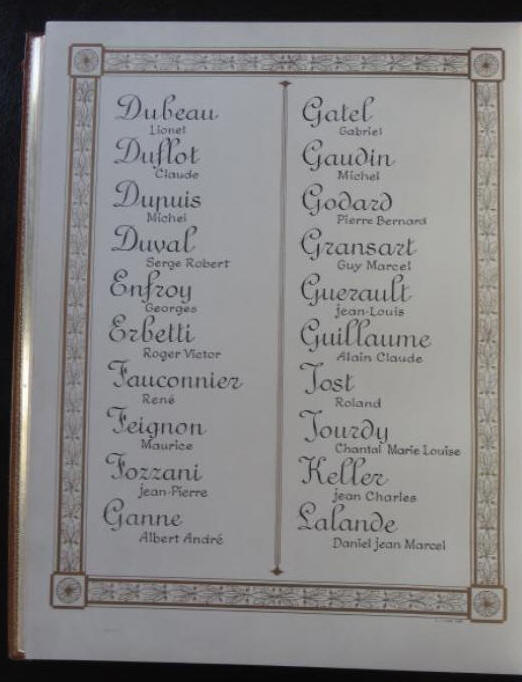 Dubeau
Lionel
Duflot
Claude
Dupuis
Michel
Duval
Serge Robert
Enfroy
Georges
Erbetti
Roger Victor
Fauconnier
René
Feignon
Maurice
Fozzani
jean-Pierre
Ganne
Albert André
Gatel
Gabriel
Gaudin
Michel
Godard
Pierre Bernard
Gransart
Guy Marcel
Guerault
jean-Louis
Guillaume
Alain Claude
Jost
Roland
Jourdy
Chantal Marie Louise
Keller
jean Charles
Lalande
Daniel jean Marcel